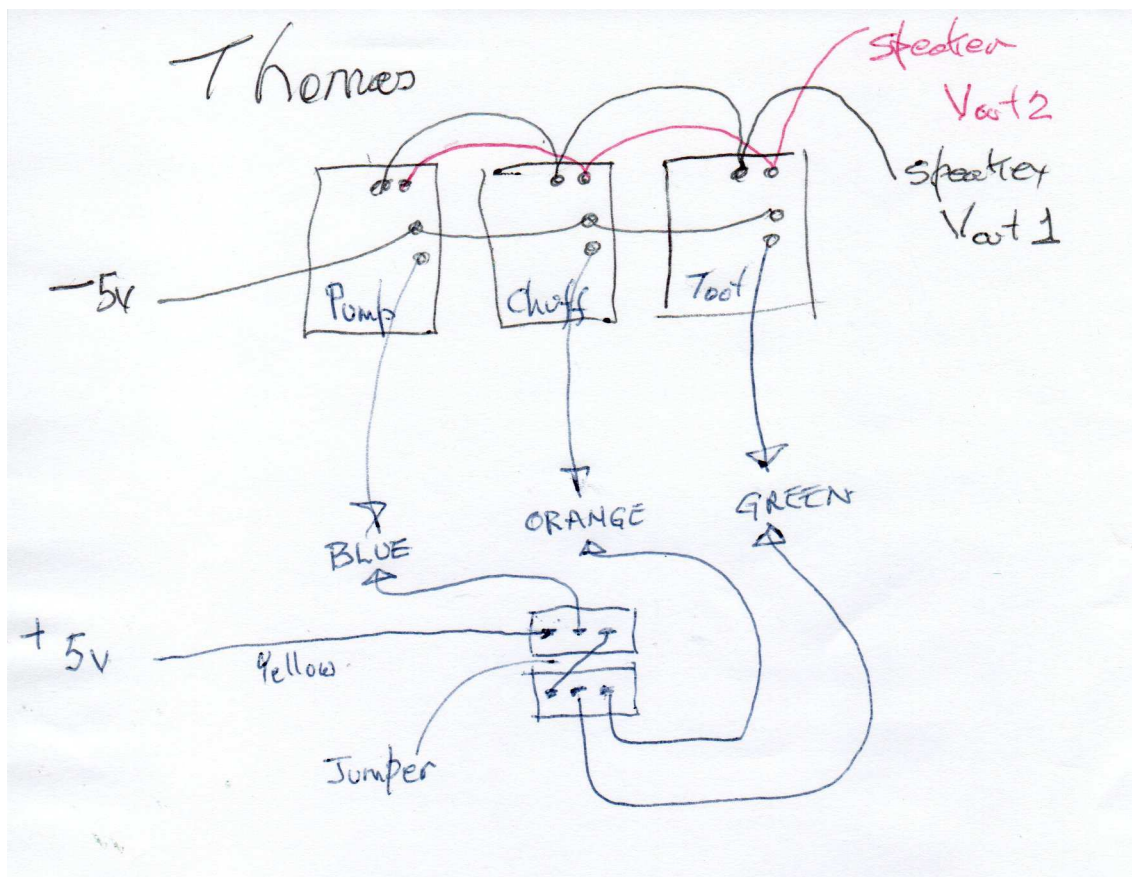 Thomas
speaker
Vout 2
speaker
Vout 1
-5v
Pump
Chuff
Toot
BLUE
ORANGE
GREEN
+5v
Yellow
Jumper